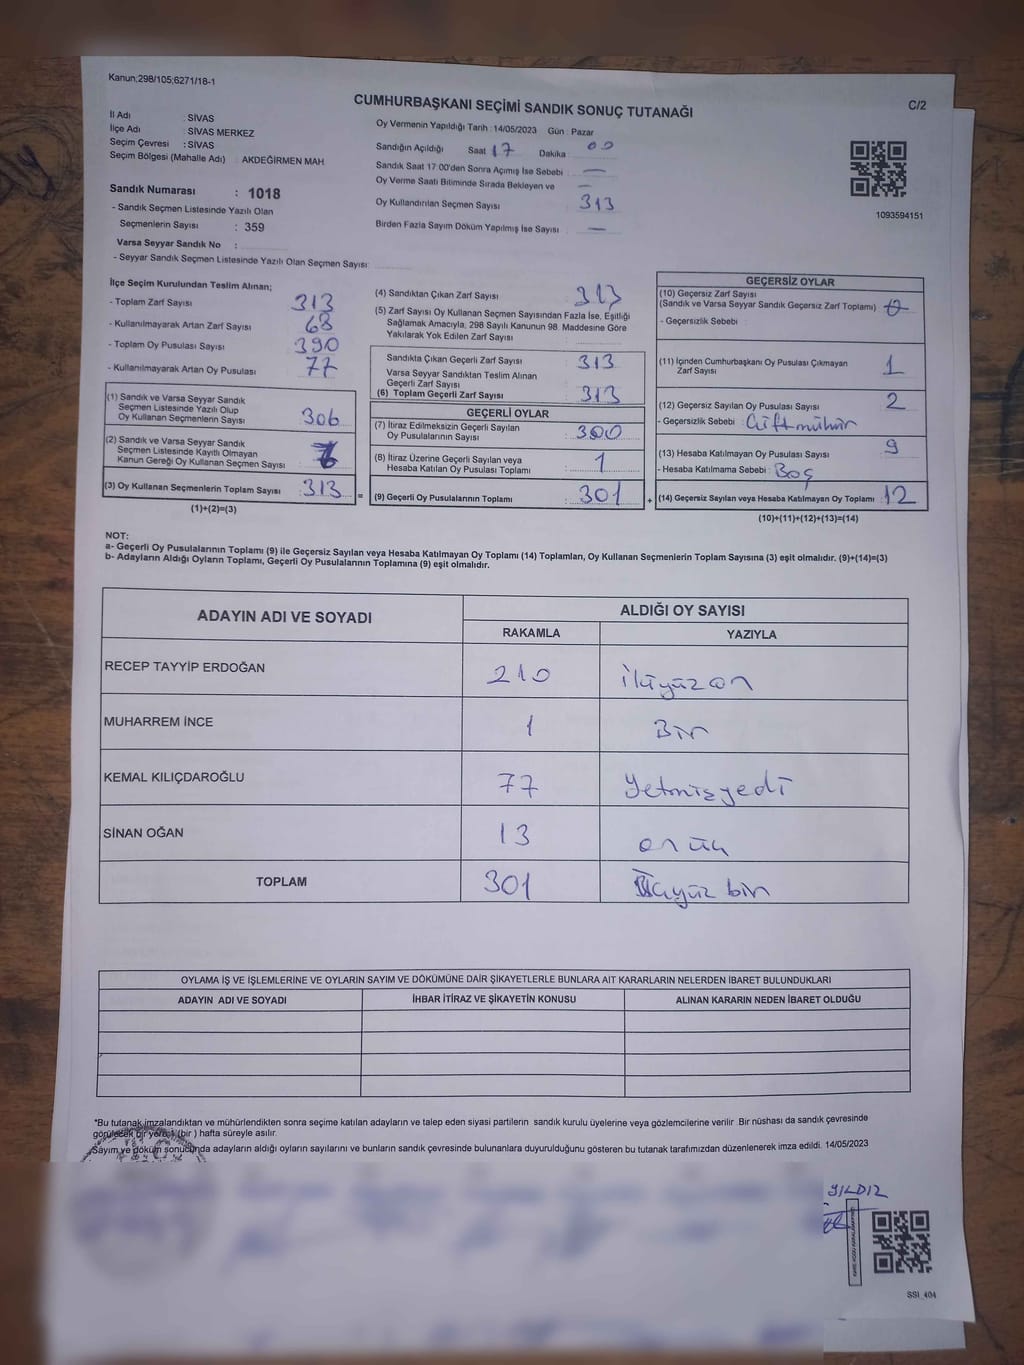 Kanun;298/105;6271/18-1
CUMHURBAŞKANI SEÇİMİ SANDIK SONUÇ TUTANAĞI
C/2
İl Adı : SİVAS
İlçe Adı : SİVAS MERKEZ
Seçim Çevresi : SİVAS
Seçim Bölgesi (Mahalle Adı) : AKDEĞİRMEN MAH
Sandık Numarası : 1018
- Sandık Seçmen Listesinde Yazılı Olan
Seçmenlerin Sayısı : 359
Varsa Seyyar Sandık No :
- Seyyar Sandık Seçmen Listesinde Yazılı Olan Seçmen Sayısı:
Oy Vermenin Yapıldığı Tarih : 14/05/2023 Gün : Pazar
Sandığın Açıldığı Saat 17 Dakika 00
Sandık Saat 17:00'den Sonra Açımış İse Sebebi : —
Oy Verme Saati Bitiminde Sırada Bekleyen ve —
Oy Kullandırılan Seçmen Sayısı 313
Birden Fazla Sayım Döküm Yapılmış İse Sayısı : —
1093594151
İlçe Seçim Kurulundan Teslim Alınan;
- Toplam Zarf Sayısı 313
- Kullanılmayarak Artan Zarf Sayısı : 68
- Toplam Oy Pusulası Sayısı 390
- Kullanılmayarak Artan Oy Pusulası : 77
(1) Sandık ve Varsa Seyyar Sandık
Seçmen Listesinde Yazılı Olup
Oy Kullanan Seçmenlerin Sayısı : 306
(2) Sandık ve Varsa Seyyar Sandık
Seçmen Listesinde Kayıtlı Olmayan
Kanun Gereği Oy Kullanan Seçmen Sayısı : 7
(3) Oy Kullanan Seçmenlerin Toplam Sayısı : 313 =
(1)+(2)=(3)
(4) Sandıktan Çıkan Zarf Sayısı : 313
(5) Zarf Sayısı Oy Kullanan Seçmen Sayısından Fazla İse, Eşitliği
Sağlamak Amacıyla, 298 Sayılı Kanunun 98. Maddesine Göre
Yakılarak Yok Edilen Zarf Sayısı :
Sandıkta Çıkan Geçerli Zarf Sayısı : 313
Varsa Seyyar Sandıktan Teslim Alınan
Geçerli Zarf Sayısı
(6) Toplam Geçerli Zarf Sayısı : 313
GEÇERLİ OYLAR
(7) İtiraz Edilmeksizin Geçerli Sayılan
Oy Pusulalarının Sayısı : 300
(8) İtiraz Üzerine Geçerli Sayılan veya
Hesaba Katılan Oy Pusulası Toplamı : 1
(9) Geçerli Oy Pusulalarının Toplamı : 301 +
GEÇERSİZ OYLAR
(10) Geçersiz Zarf Sayısı
(Sandık ve Varsa Seyyar Sandık Geçersiz Zarf Toplamı) : 0
- Geçersizlik Sebebi :
(11) İçinden Cumhurbaşkanı Oy Pusulası Çıkmayan
Zarf Sayısı : 1
(12) Geçersiz Sayılan Oy Pusulası Sayısı : 2
- Geçersizlik Sebebi : Çift mühür
(13) Hesaba Katılmayan Oy Pusulası Sayısı : 9
- Hesaba Katılmama Sebebi : Boş
(14) Geçersiz Sayılan veya Hesaba Katılmayan Oy Toplamı : 12
(10)+(11)+(12)+(13)=(14)
NOT:
a- Geçerli Oy Pusulalarının Toplamı (9) ile Geçersiz Sayılan veya Hesaba Katılmayan Oy Toplamı (14) Toplamları, Oy Kullanan Seçmenlerin Toplam Sayısına (3) eşit olmalıdır. (9)+(14)=(3)
b- Adayların Aldığı Oyların Toplamı, Geçerli Oy Pusulalarının Toplamına (9) eşit olmalıdır.
ADAYIN ADI VE SOYADI ALDIĞI OY SAYISI
RAKAMLA YAZIYLA
RECEP TAYYİP ERDOĞAN 210 ikiyüzon
MUHARREM İNCE 1 Bir
KEMAL KILIÇDAROĞLU 77 Yetmişyedi
SİNAN OĞAN 13 onüç
TOPLAM 301 üçyüz bir
OYLAMA İŞ VE İŞLEMLERİNE VE OYLARIN SAYIM VE DÖKÜMÜNE DAİR ŞİKAYETLERLE BUNLARA AİT KARARLARIN NELERDEN İBARET BULUNDUKLARI
ADAYIN ADI VE SOYADI İHBAR İTİRAZ VE ŞİKAYETİN KONUSU ALINAN KARARIN NEDEN İBARET OLDUĞU
*Bu tutanak imzalandıktan ve mühürlendikten sonra seçime katılan adayların ve talep eden siyasi partilerin sandık kurulu üyelerine veya gözlemcilerine verilir. Bir nüshası da sandık çevresinde
görülecek bir yere 1 (bir ) hafta süreyle asılır.
Sayım ve döküm sonucunda adayların aldığı oyların sayılarını ve bunların sandık çevresinde bulunanlara duyurulduğunu gösteren bu tutanak tarafımızdan düzenlenerek imza edildi. 14/05/2023
YILDIZ
SSI_404